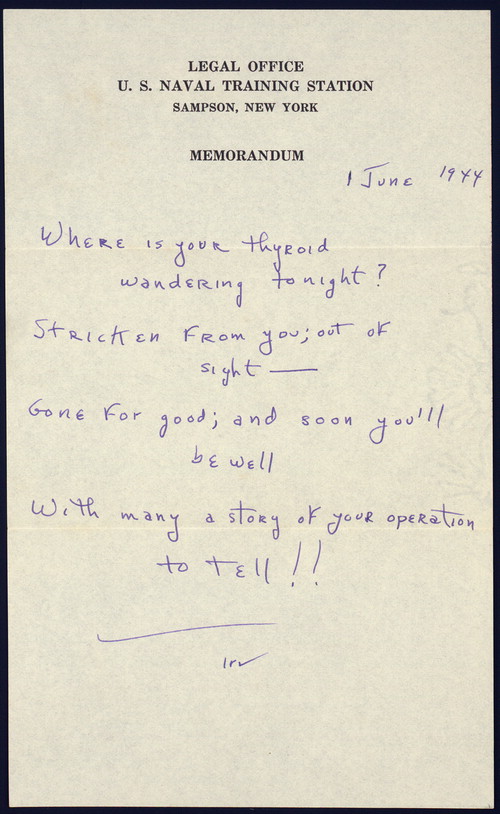 LEGAL OFFICE
U. S. NAVAL TRAINING STATION
SAMPSON, NEW YORK
MEMORANDUM
1 June 1944
Where is your thyroid
wandering tonight?
Stricken from you; out of
sight —
Gone for good; and soon you'll
be well
With many a story of your operation
to tell!!
Irv